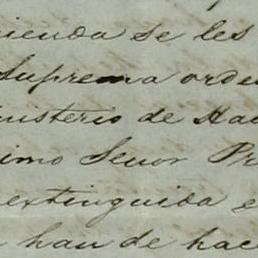 ienda se les
Suprema orde
nisterio de Ha
imo Señor Pr
extinguida e
han de hace